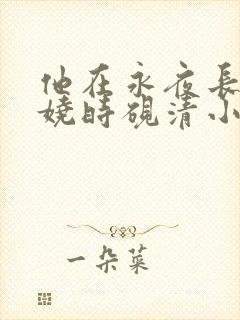 他在永夜長
嬈時硯清小
一朵菜